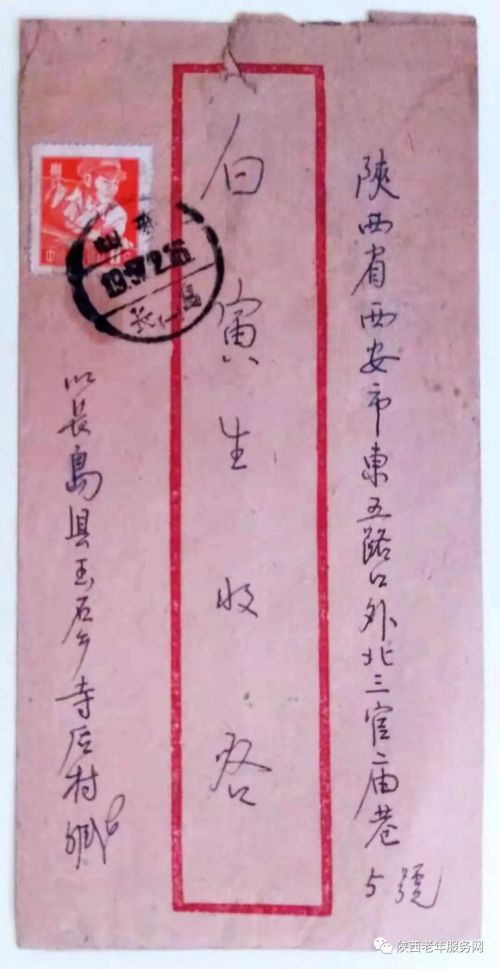 陝西省西安市東五路口外北三官庙巷
5號
白寅生收启
长島县玉石乡寺后村
1957.2.15
长
陕西老年服务网